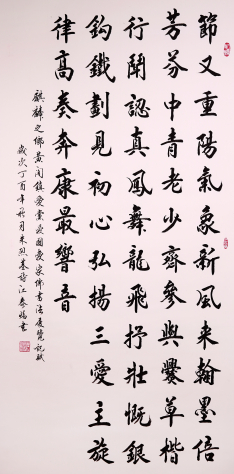 節又重陽氣象新風來翰墨倍
芳芬中青老少齊參與草楷
行鬪認真鳳舞龍飛抒壯慨銀
鈎鐵劃見初心弘揚三愛主旋
律高奏奔康最響音
麒麟之鄉黃閣鎮愛黨愛國愛家鄉書法展覽記賦
歲次丁酉年月朱烈基詩江書